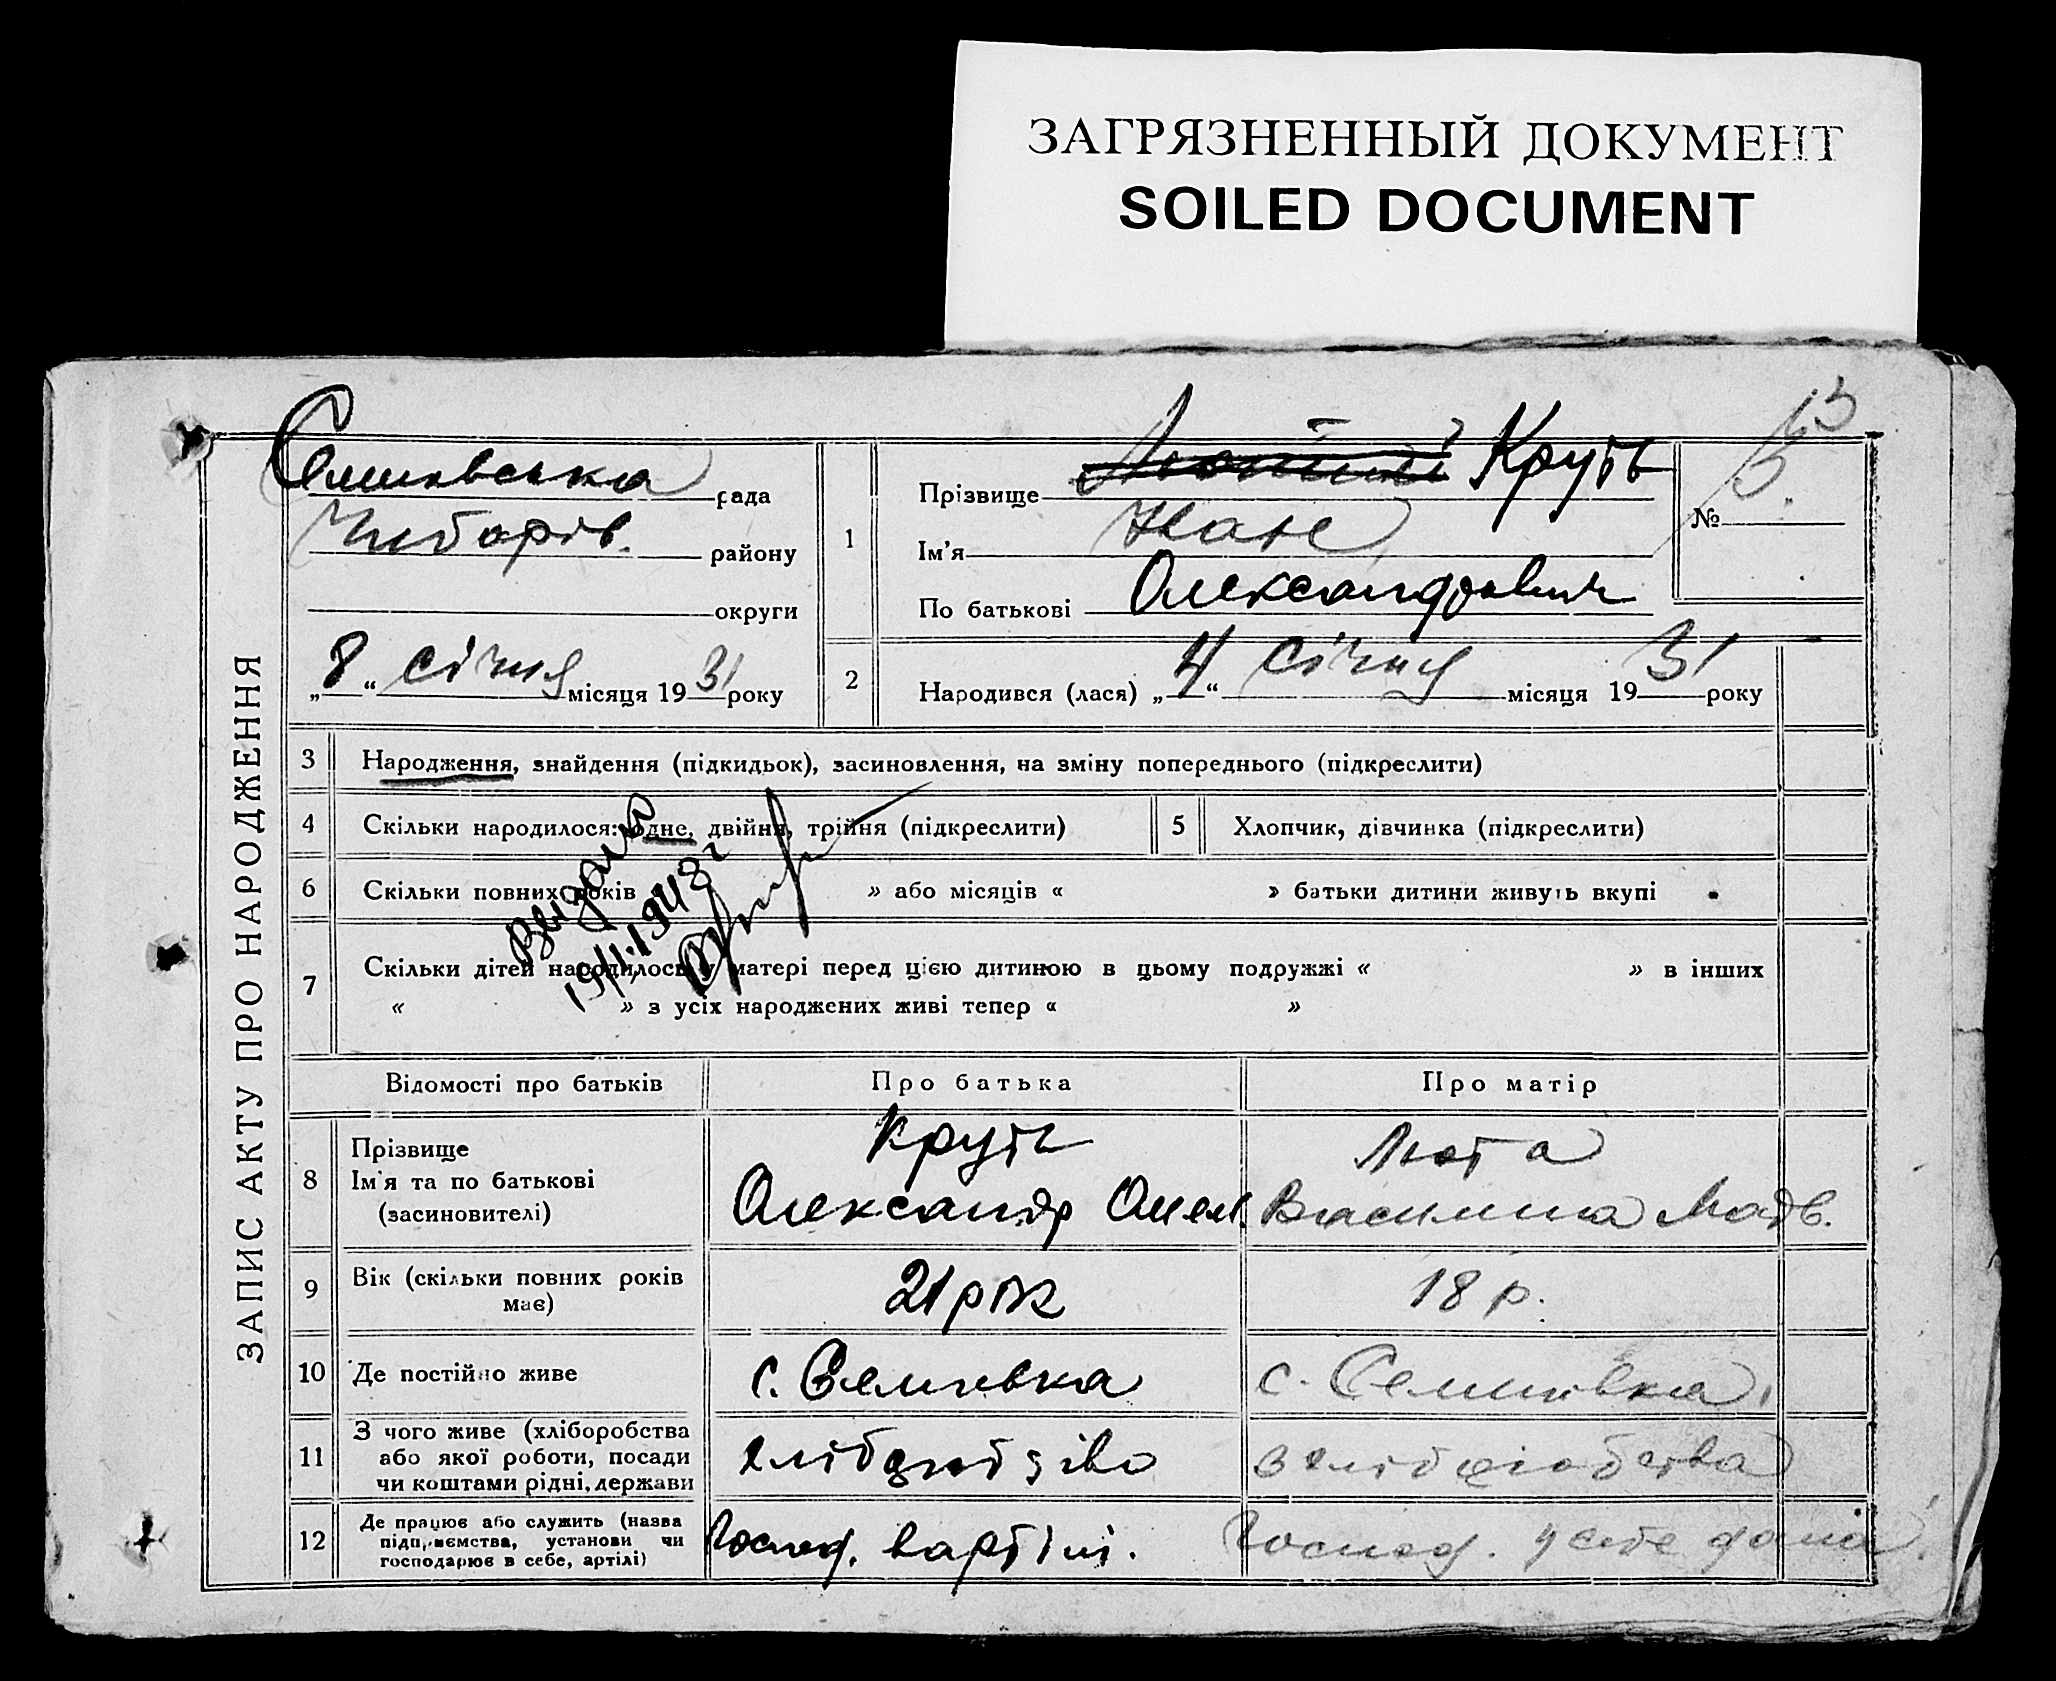 ЗАГРЯЗНЕННЫЙ ДОКУМЕНТ
SOILED DOCUMENT
ЗАПИС АКТУ ПРО НАРОДЖЕННЯ
рада
району
округи
„8“ січня місяця 1931 року
1
Прізвище Круть
Ім'я
По батькові Олександрович
№ 5
13
2
Народився (лася) „4“ січня місяця 1931 року
3 Народження, знайдення (підкидьок), засиновлення, на зміну попереднього (підкреслити)
4 Скільки народилося: одне, двійня, трійня (підкреслити)
5 Хлопчик, дівчинка (підкреслити)
6 Скільки повних років » або місяців « » батьки дитини живуть вкупі
7 Скільки дітей народилось у матері перед цією дитиною в цьому подружжі « » в інших
« » з усіх народжених живі тепер « »
Видано
19/II.1943 г
Відомості про батьків Про батька Про матір
8 Прізвище
Ім'я та по батькові
(засиновителі)
Круть
Олександр Омел.
Люта
Василина Мадв.
9 Вік (скільки повних років
має)
21 рік
18 р.
10 Де постійно живе
с. Семиовка
с. Семиовка
11 З чого живе (хліборобства
або якої роботи, посади
чи коштами рідні, держави
12 Де працює або служить (назва
підприємства, установи чи
господарює в себе, артілі)
Господ. в артілі.
Господ. у себе дома